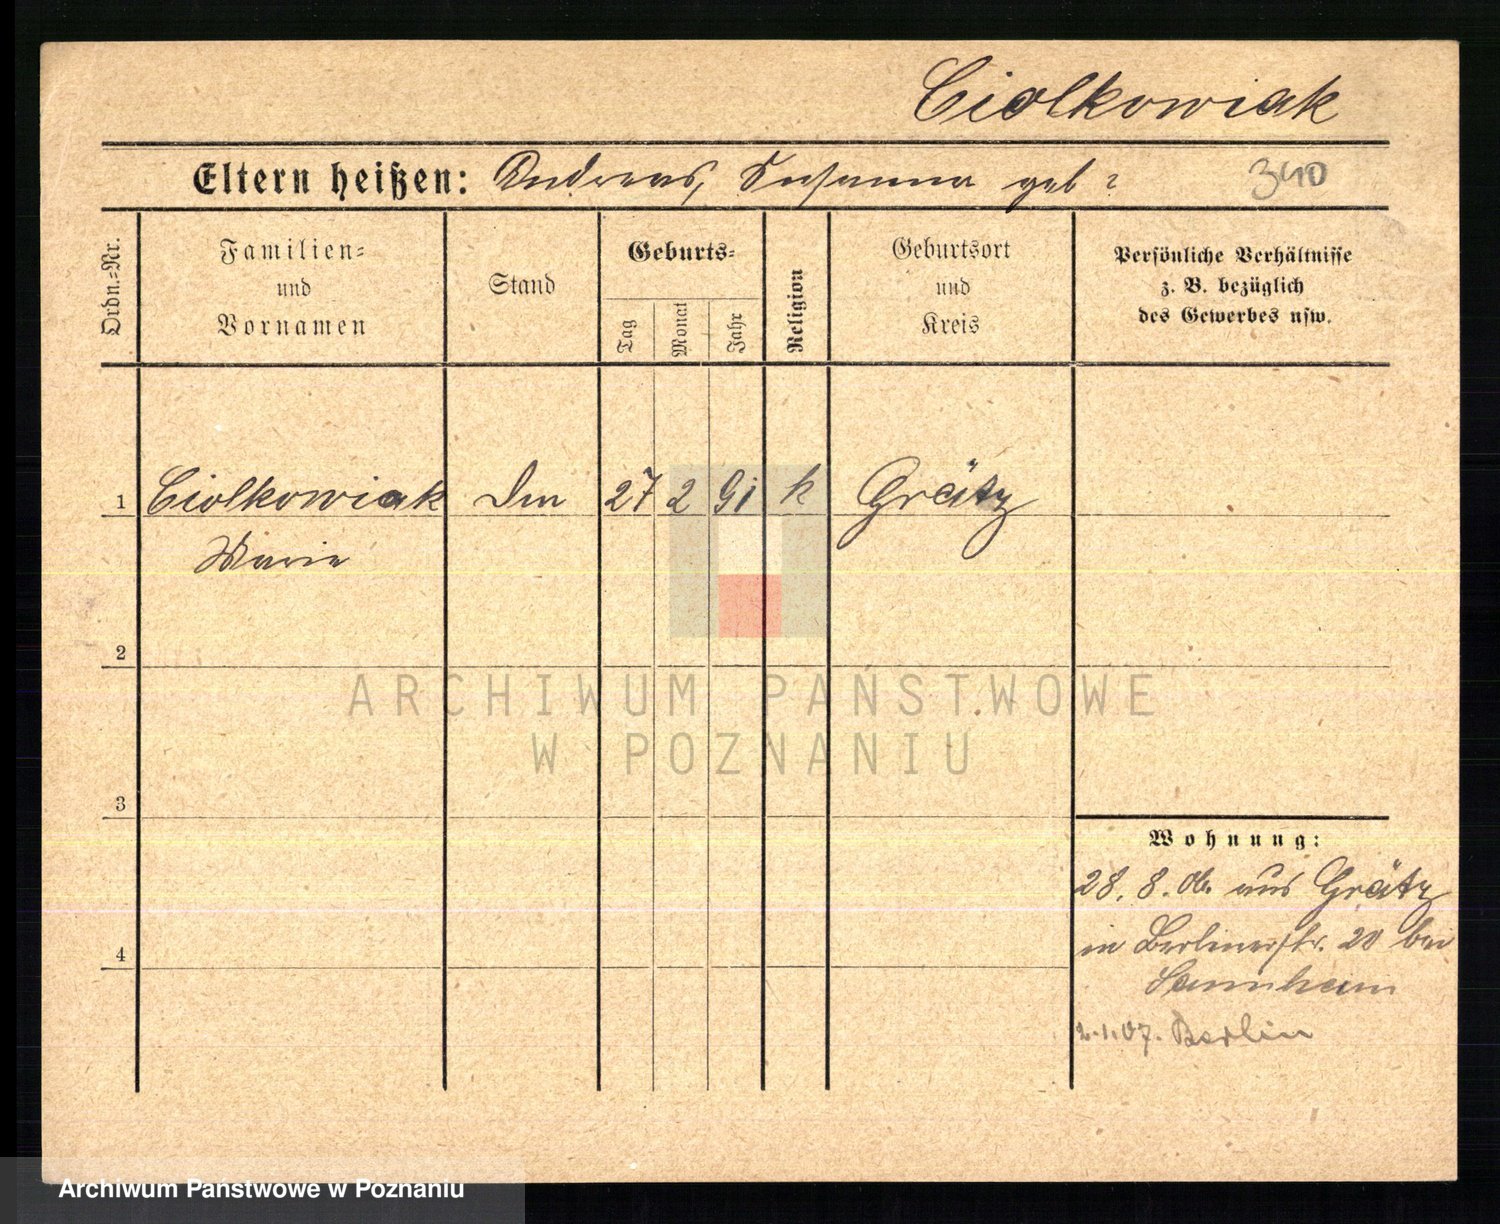 Ciolkowiak
Eltern heißen: Andreas, Susanna geb ? 340
Ordn.=Nr.
Familien=
und
Vornamen
Stand
Geburts=
Tag
Monat
Jahr
Religion
Geburtsort
und
Kreis
Persönliche Verhältnisse
z. B. bezüglich
des Gewerbes usw.
1 Ciolkowiak 27 2 91 k Grätz
Marie
2
ARCHIWUM PAŃSTWOWE
W POZNANIU
3
Wohnung:
28. 8. 06. aus Grätz
in Berlinerstr. 20 bei
4
2.1.07. Berlin
Archiwum Państwowe w Poznaniu